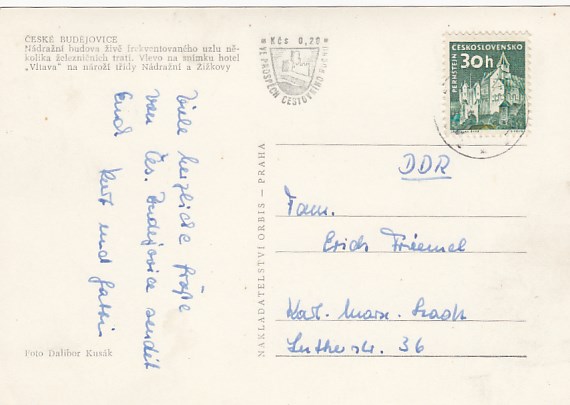 ČESKÉ BUDĚJOVICE
Nádražní budova živě frekventovaného uzlu ně-
kolika železničních tratí. Vlevo na snímku hotel
„Vltava“ na nároží třídy Nádražní a Žižkovy
Kčs 0,20
VE PROSPĚCH CESTOVNÍHO RUCHU
ČESKOSLOVENSKO
30h
PERNŠTEJN
Viele herzliche Grüße
von Čes. Budějovice sendet
Euch Kurt und Gattin
NAKLADATELSTVÍ ORBIS — PRAHA
DDR
Fam.
Erich Friemel
Karl-Marx-Stadt
Lutherstr. 36
Foto Dalibor Kusák